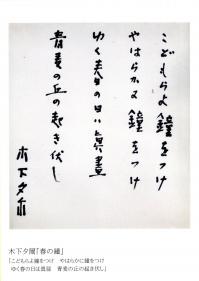 こどもらよ鐘をつけ
やはらかに鐘をつけ
ゆく春の日は真昼
青麦の丘の起き伏し
木下夕爾
木下夕爾「春の鐘」
「こどもらよ鐘をつけ　やはらかに鐘をつけ
ゆく春の日は真昼　青麦の丘の起き伏し」